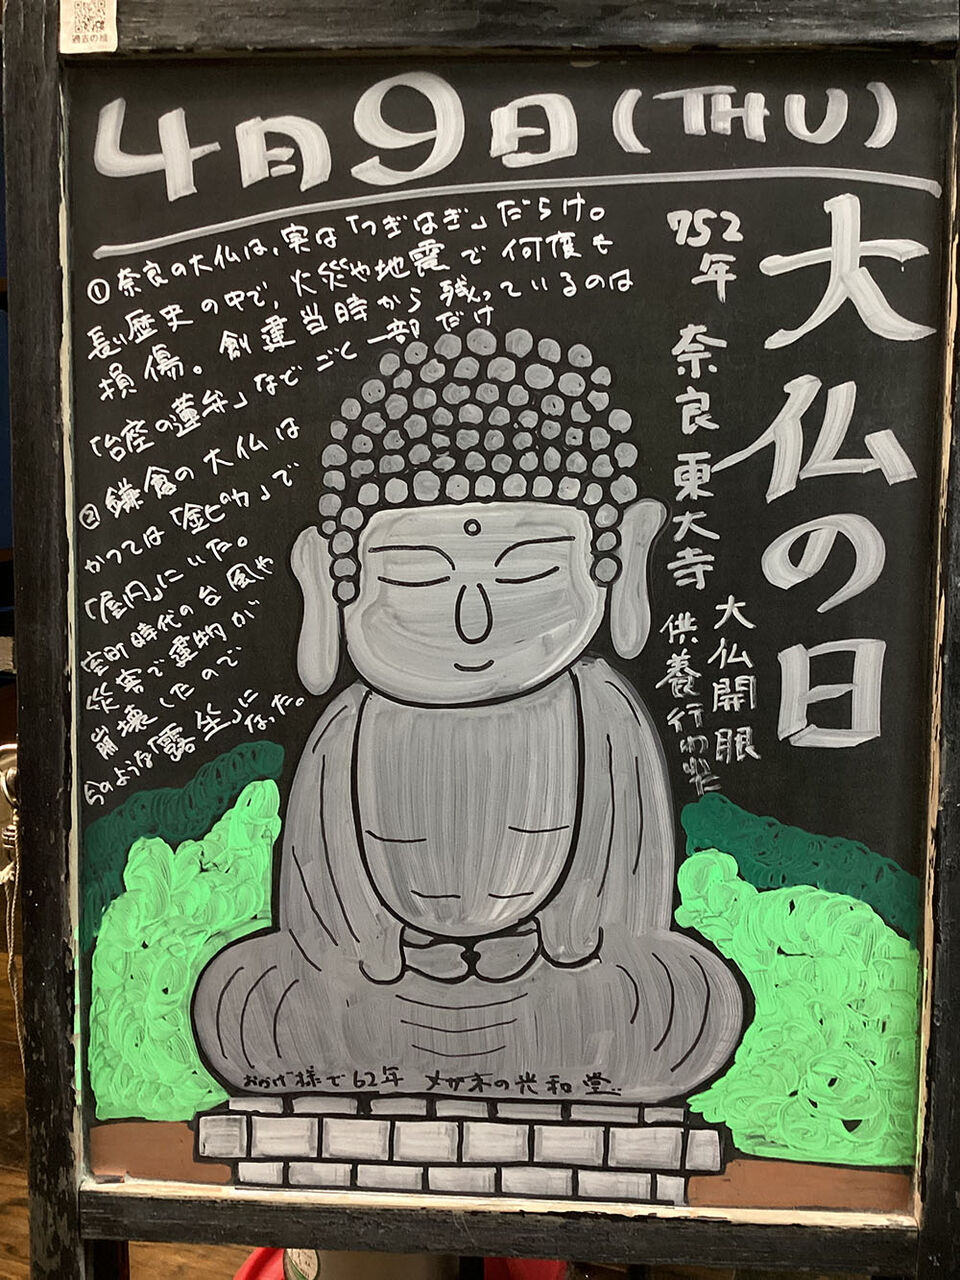 過去の絵
4月9日(THU)
大仏の日
752年 奈良 東大寺
大仏開眼
供養行われた
①奈良の大仏は、実は「つぎはぎ」だらけ。
長い歴史の中で、火災や地震で何度も
損傷。創建当時から残っているのは
「台座の蓮弁」などごく一部だけ
②鎌倉の大仏は
かつては「金ピカ」で
「屋内」にいた。
室町時代の台風や
災害で建物が
崩壊したので
今のような「露坐」になった。
おかげ様で62年 メガネの光和堂..